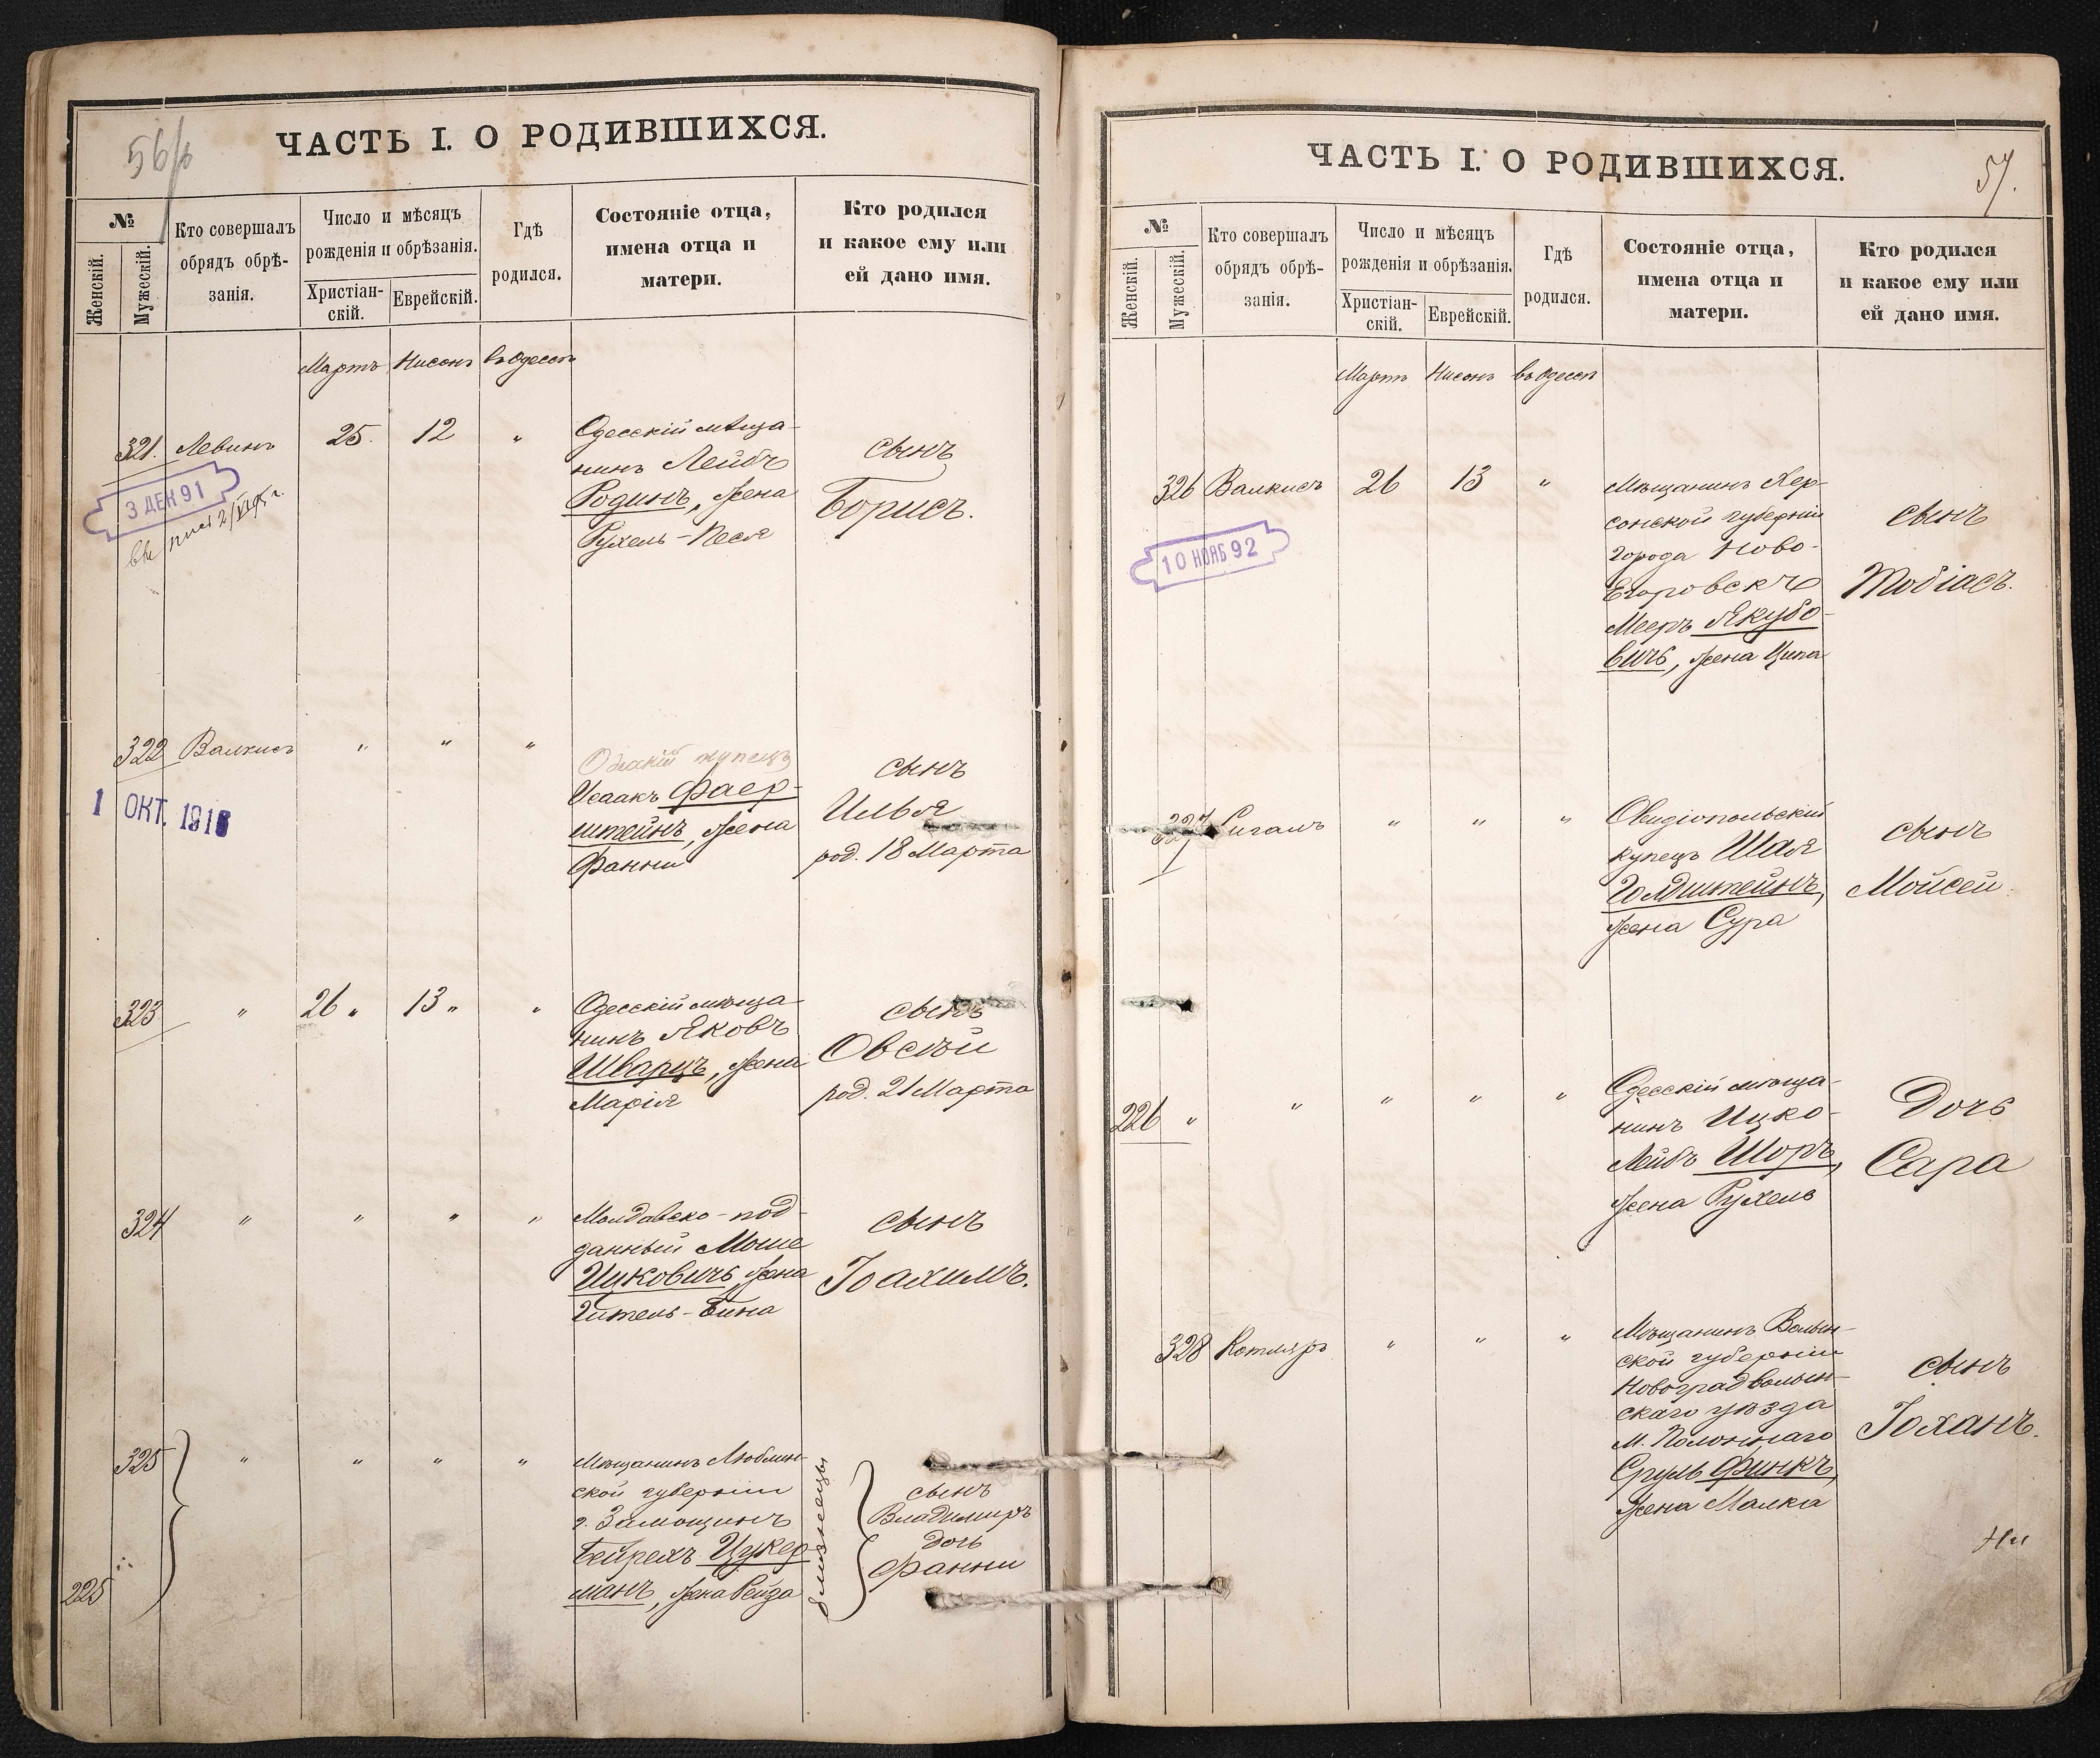 56/б
ЧАСТЬ I. О РОДИВШИХСЯ.
№
Женскій.
Мужескій.
Кто совершалъ
обрядъ обрѣ-
занія.
Число и мѣсяцъ
рожденія и обрѣзанія.
Христіан-
скій.
Еврейскій.
Гдѣ
родился.
Состояніе отца,
имена отца и
матери.
Кто родился
и какое ему или
ей дано имя.
Мартъ Нисонъ въ Одессѣ
321. Левинъ 25. 12 "
Одесскій мѣща-
нинъ Лейбъ
Родинъ, жена
Рухель-Песя
сынъ
Борисъ.
3 ДЕК 91
322 Валкисъ " " "
Одесскій купецъ
Исаакъ Фаер-
штейнъ, жена
Фанни
сынъ
Илья
род. 18 Марта
1 ОКТ. 1916
323 " 26 " 13 " "
Одесскій мѣща-
нинъ Яковъ
Шварцъ, жена
Марія
сынъ
Овсѣй
род. 21 Марта
324 " " " "
Молдавско-под-
данный Моше
Ицковичъ, жена
Гитель-Бина
сынъ
Іоахимъ.
325 " " " "
225
Мѣщанинъ Люблин-
ской губерніи
г. Замощинъ
Бейрехъ Цукер-
манъ, жена Рейза
близнецы
сынъ
Владимиръ
дочь
Фанни
57.
ЧАСТЬ I. О РОДИВШИХСЯ.
№
Женскій.
Мужескій.
Кто совершалъ
обрядъ обрѣ-
занія.
Число и мѣсяцъ
рожденія и обрѣзанія.
Христіан-
скій.
Еврейскій.
Гдѣ
родился.
Состояніе отца,
имена отца и
матери.
Кто родился
и какое ему или
ей дано имя.
Мартъ Нисонъ въ Одессѣ
326 Валкисъ 26 13 "
Мѣщанинъ Хер-
сонской губерніи
города Ново-
Егоровскъ
Мееръ Якубо-
вичъ, жена Ципа
сынъ
Тобіасъ.
10 НОЯБ 92
327 Сигалъ " " "
Овидіопольскій
купецъ Шая
Голдштейнъ,
жена Сура
сынъ
Мойсей
226 " " " " "
Одесскій мѣща-
нинъ Ицко-
Лейбъ Шоръ,
жена Рухель
Дочь
Сара
328 Котляръ " " "
Мѣщанинъ Волын-
ской губерніи
Новоградволын-
скаго уѣзда
м. Полоннаго
Сруль Финкъ,
жена Малка
сынъ
Іоханъ.